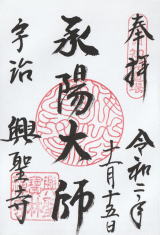 奉拝
令和二年
十一月十五日
承陽大師
宇治
興聖寺